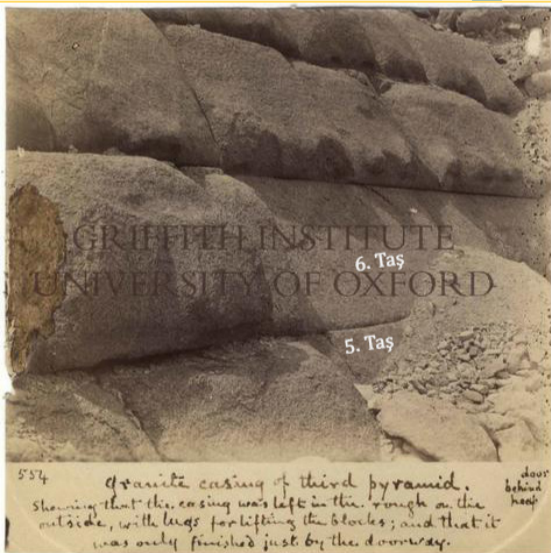 GRIFFITH INSTITUTE
UNIVERSITY OF OXFORD
6. Taş
5. Taş
554
granite casing of third pyramid.
door
behind
heap
Showing that the casing was left in the rough on the
outside, with lugs for lifting the blocks; and that it
was only finished just by the doorway.